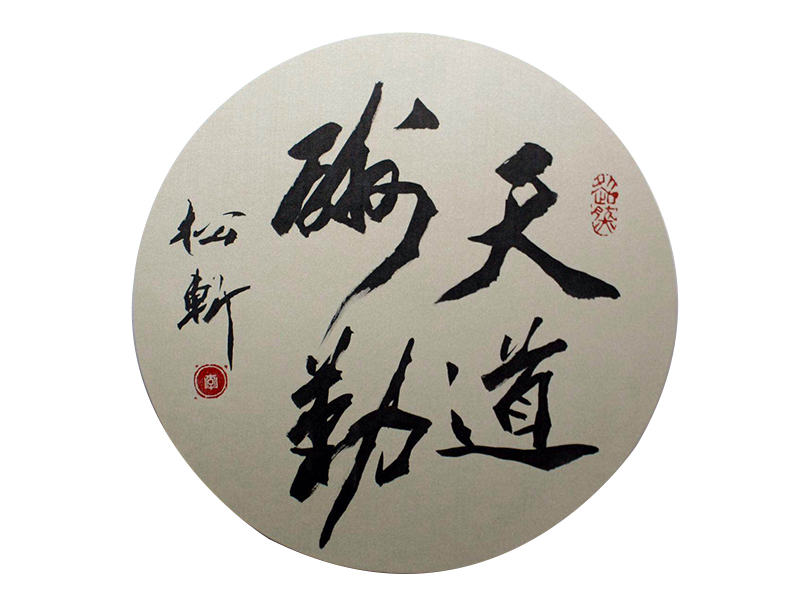 天道
酬勤
松軒